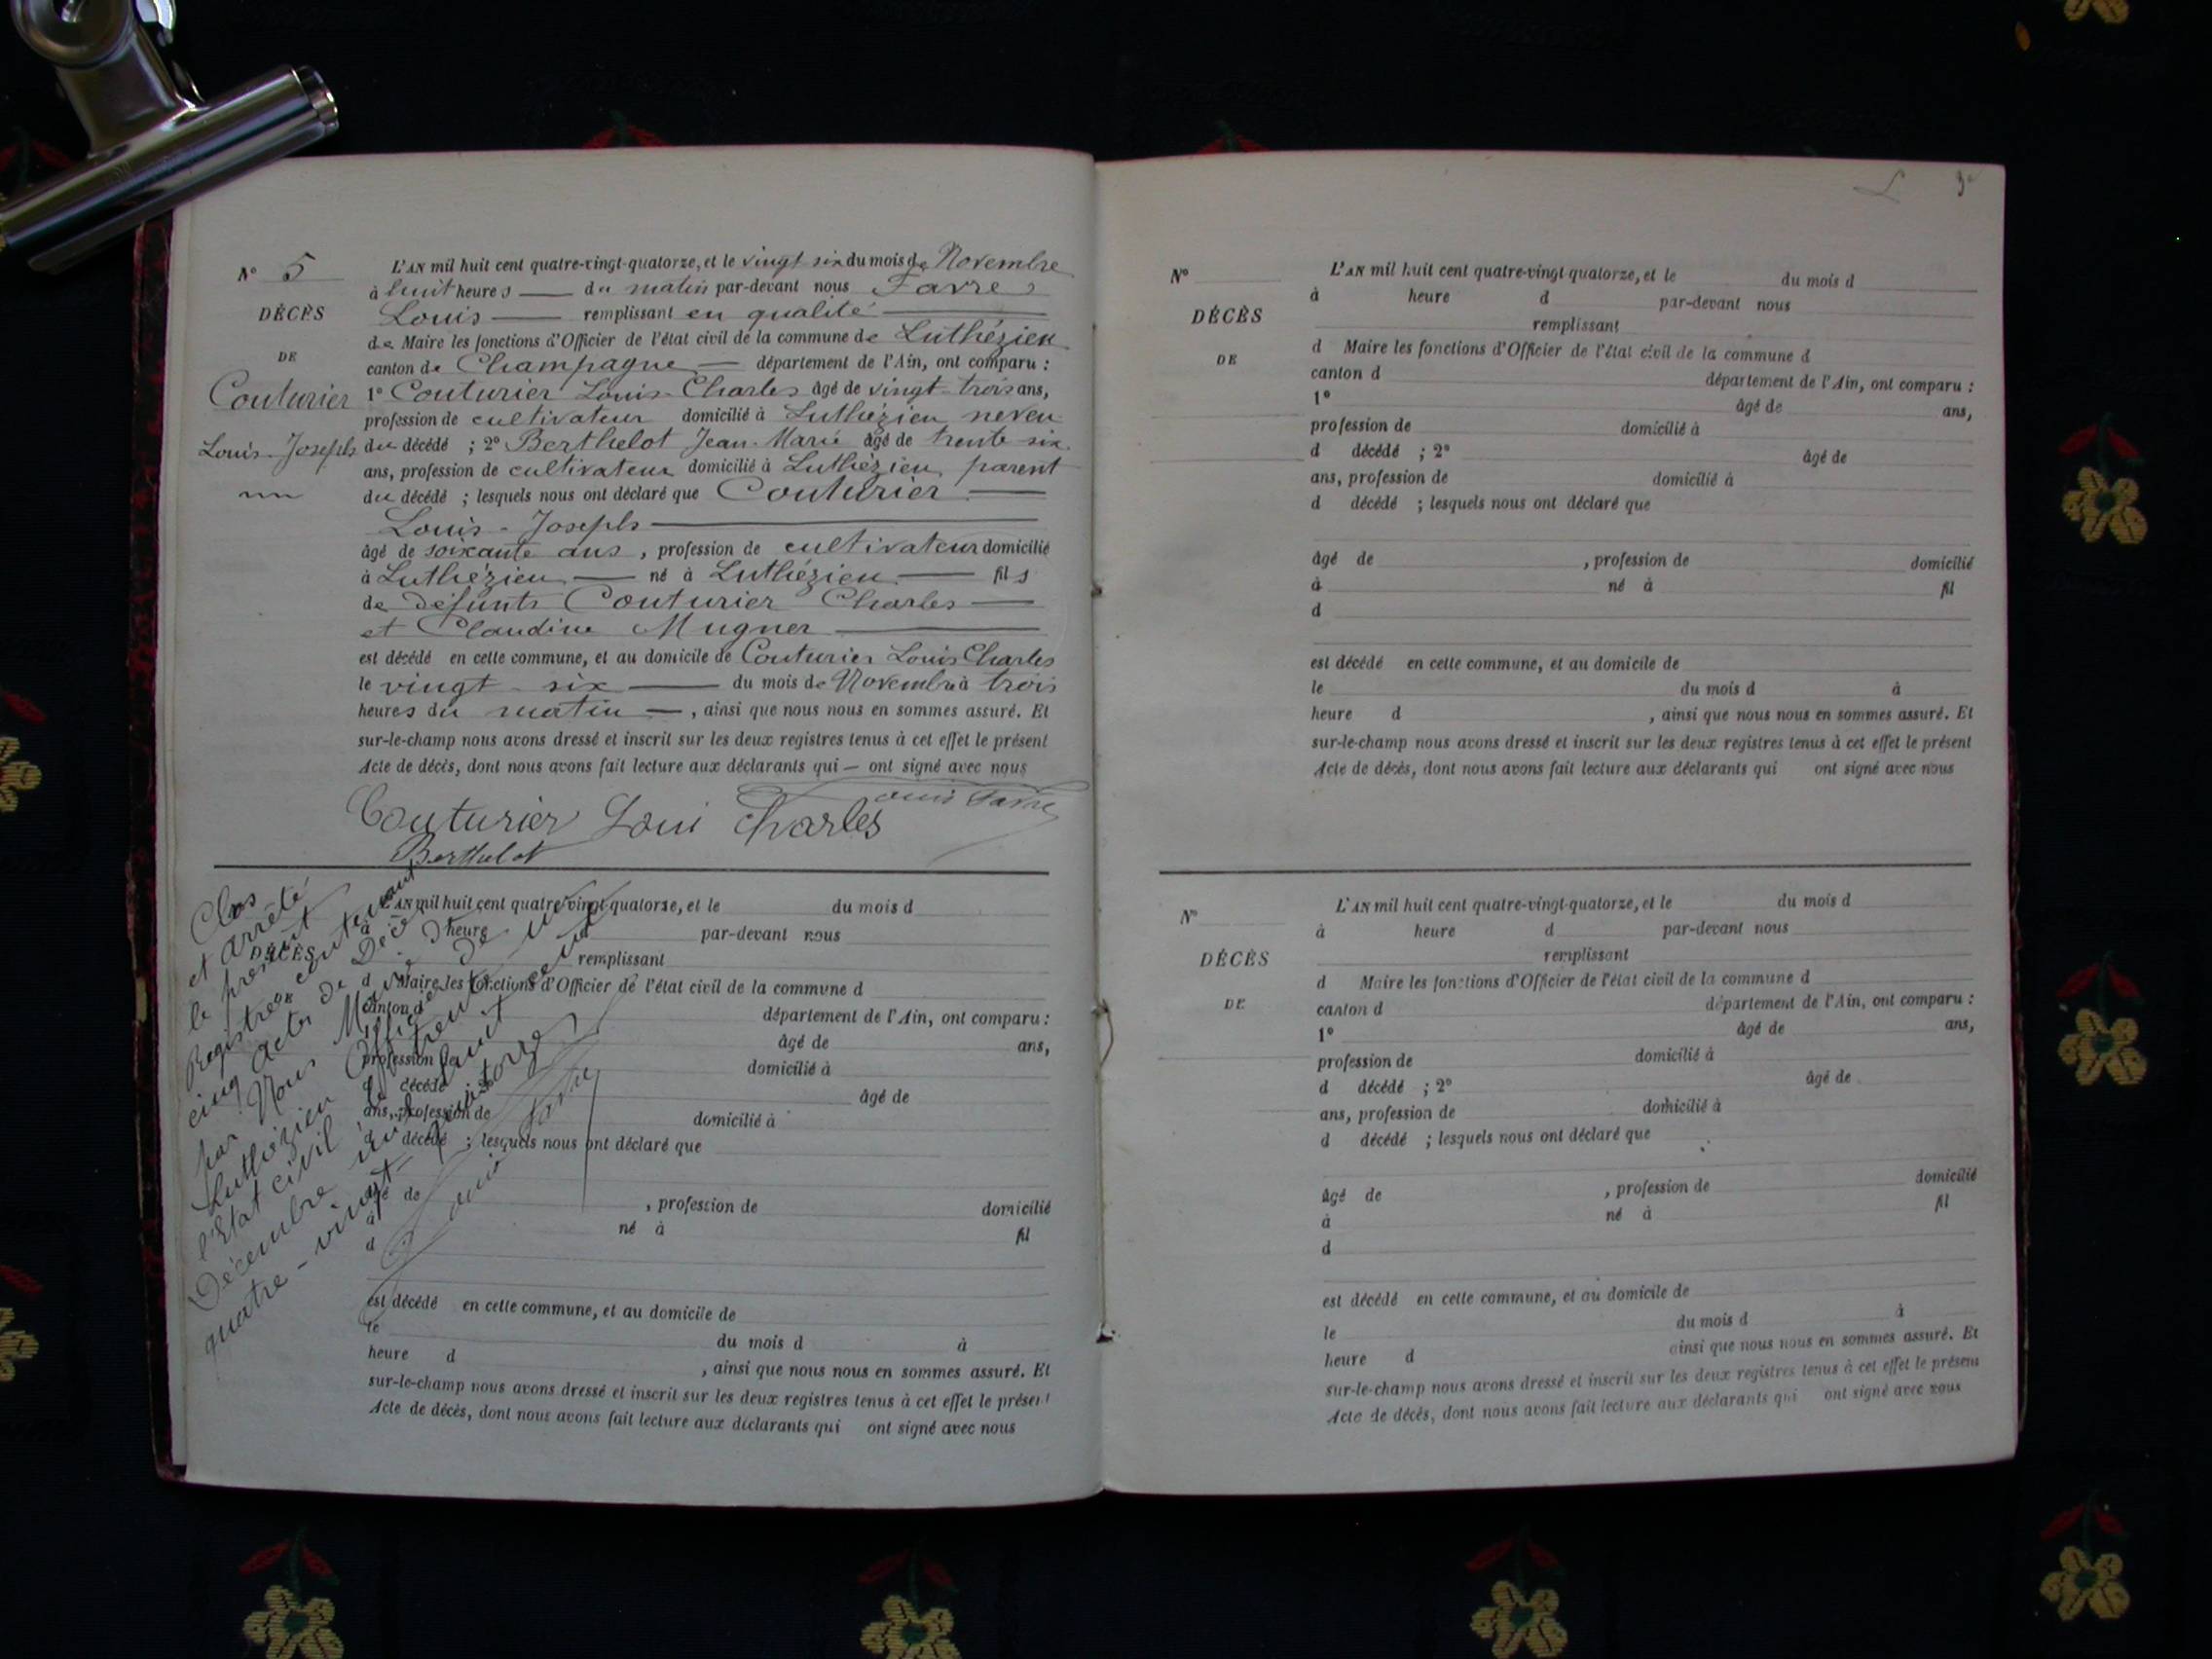 N° 5
DÉCÈS
DE
Couturier
Louis-Joseph
L'AN mil huit cent quatre-vingt-quatorze, et le vingt six du mois de Novembre
à huit heures — du matin par-devant nous Favre
Louis — remplissant en qualité —
de Maire les fonctions d'Officier de l'état civil de la commune de Luthézieu
canton de Champagne — département de l'Ain, ont comparu :
1° Couturier Louis-Charles âgé de vingt-trois ans,
profession de cultivateur domicilié à Luthézieu neveu
du décédé ; 2° Berthelot Jean-Marie âgé de trente six
ans, profession de cultivateur domicilié à Luthézieu parent
du décédé ; lesquels nous ont déclaré que Couturier —
Louis-Joseph —
âgé de soixante ans, profession de cultivateur domicilié
à Luthézieu — né à Luthézieu — fils
de défunts Couturier Charles —
et Claudine Mugner —
est décédé en cette commune, et au domicile de Couturier Louis Charles
le vingt-six — du mois de Novembre à trois
heures du matin —, ainsi que nous nous en sommes assuré. Et
sur-le-champ nous avons dressé et inscrit sur les deux registres tenus à cet effet le présent
Acte de décès, dont nous avons fait lecture aux déclarants qui — ont signé avec nous
Louis Favre
Couturier Loui Charles
Berthelot
Clos
et arrêté
le présent
Registre contenant
cinq actes de Décès
par Nous Maire de
Luthézieu Officier de
l'Etat civil le trente un
Décembre mil huit cent
quatre-vingt-quatorze
Louis Favre
DÉCÈS
DE
L'AN mil huit cent quatre-vingt-quatorze, et le du mois d
à heure d par-devant nous
remplissant
d Maire les fonctions d'Officier de l'état civil de la commune d
canton d département de l'Ain, ont comparu :
âgé de ans,
profession de domicilié à
d décédé ; 2° âgé de
ans, profession de domicilié à
d décédé ; lesquels nous ont déclaré que
âgé de , profession de domicilié
à né à fil
d
est décédé en cette commune, et au domicile de
le du mois d à
heure d , ainsi que nous nous en sommes assuré. Et
sur-le-champ nous avons dressé et inscrit sur les deux registres tenus à cet effet le présent
Acte de décès, dont nous avons fait lecture aux déclarants qui ont signé avec nous
3
N°
DÉCÈS
DE
L'AN mil huit cent quatre-vingt-quatorze, et le du mois d
à heure d par-devant nous
remplissant
d Maire les fonctions d'Officier de l'état civil de la commune d
canton d département de l'Ain, ont comparu :
1° âgé de ans,
profession de domicilié à
d décédé ; 2° âgé de
ans, profession de domicilié à
d décédé ; lesquels nous ont déclaré que
âgé de , profession de domicilié
à né à fil
d
est décédé en cette commune, et au domicile de
le du mois d à
heure d , ainsi que nous nous en sommes assuré. Et
sur-le-champ nous avons dressé et inscrit sur les deux registres tenus à cet effet le présent
Acte de décès, dont nous avons fait lecture aux déclarants qui ont signé avec nous
N°
DÉCÈS
DE
L'AN mil huit cent quatre-vingt-quatorze, et le du mois d
à heure d par-devant nous
remplissant
d Maire les fonctions d'Officier de l'état civil de la commune d
canton d département de l'Ain, ont comparu :
1° âgé de ans,
profession de domicilié à
d décédé ; 2° âgé de
ans, profession de domicilié à
d décédé ; lesquels nous ont déclaré que
âgé de , profession de domicilié
à né à fil
d
est décédé en cette commune, et au domicile de
le du mois d à
heure d ainsi que nous nous en sommes assuré. Et
sur-le-champ nous avons dressé et inscrit sur les deux registres tenus à cet effet le présent
Acte de décès, dont nous avons fait lecture aux déclarants qui ont signé avec nous